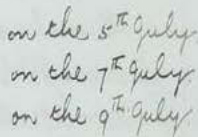 on the 5th July.
on the 7th July.
on the 9th July